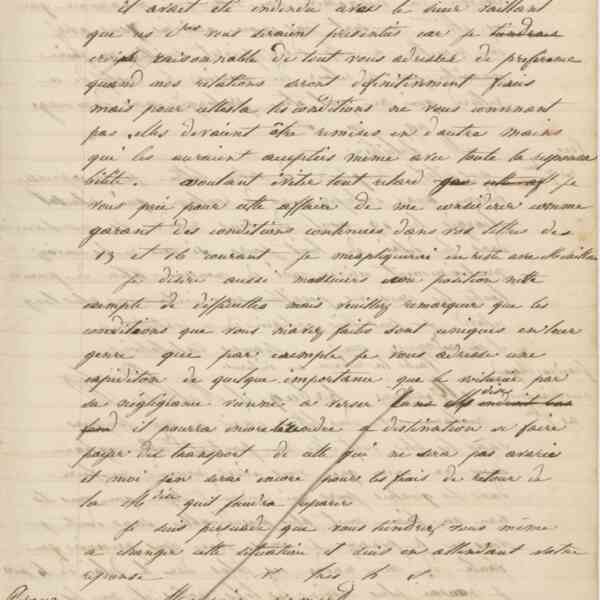 il avait été entendu avec le sieur Vaillant
que ces vous seraient présentés car je
croirai raisonnable de tout vous adresser de preference
quand nos relations seront définitivement fixées
mais pour cellela les conditions ne vous convenant
pas elles devaient être remises en d'autre mains
qui les auraient acceptées même avec toute la responsa
bilité. voulant éviter tout retard je
vous prie pour cette affaire de me considérer comme
garant des conditions contenues dans vos lettres des
13 et 16 courant je m'expliquerai du reste avec Vaillant
Je désire aussi messieurs position nette
exempte de difficultés mais veuillez remarquer que les
conditions que vous m'avez faites sont uniques en leur
genre que par exemple je vous adresse une
expédition de quelque importance que le voiturier par
sa négligence vienne a verser dans
il pourra encore a destination se faire
payer du transport de celle qui ne sera pas avariée
et moi j'en serai encore pour les frais de retour de
la Mdise qu'il faudra réparer
Je suis persuadé que vous tiendrez vous même
a changer cette situation et suis en attendant votre
réponse